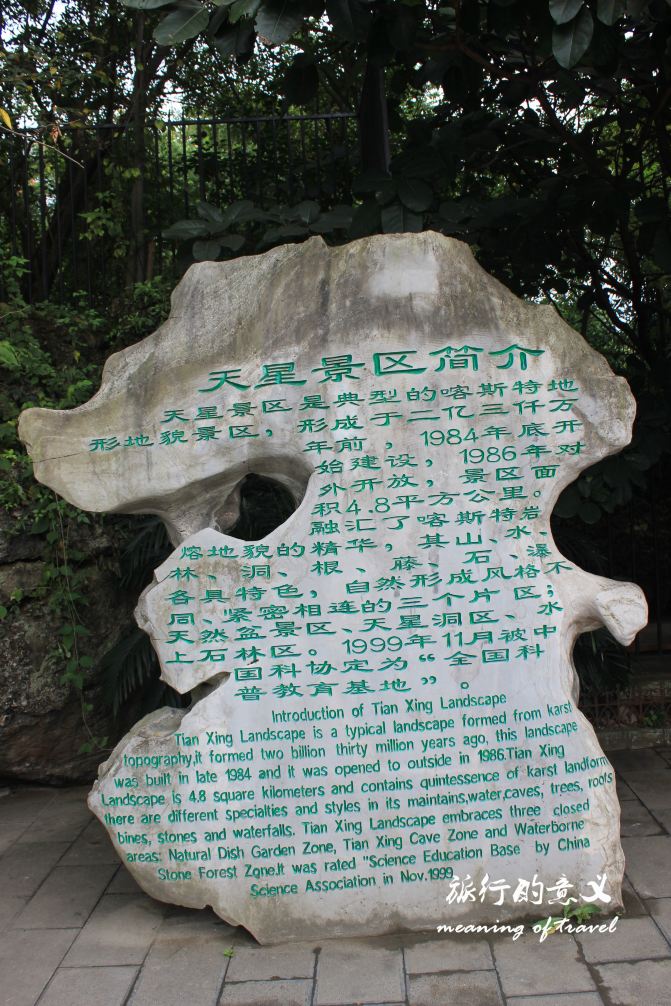 天星景区简介
天星景区是典型的喀斯特地
形地貌景区，形成于二亿三仟万
年前，1984年底开
始建设，1986年对
外开放，景区面
积4.8平方公里。
融汇了喀斯特岩
熔地貌的精华，其山、水、
林、洞、根、藤、石、瀑
各具特色，自然形成风格不
同、紧密相连的三个片区；
天然盆景区、天星洞区、水
上石林区。1999年11月被中
国科协定为“全国科
普教育基地”。
Introduction of Tian Xing Landscape
Tian Xing Landscape is a typical landscape formed from karst
topography,it formed two billion thirty million years ago, this landscape
was built in late 1984 and it was opened to outside in 1986.Tian Xing
Landscape is 4.8 square kilometers and contains quintessence of karst landform
there are different specialties and styles in its maintains,water,caves, trees, roots
bines, stones and waterfalls. Tian Xing Landscape embraces three closed
areas: Natural Dish Garden Zone, Tian Xing Cave Zone and Waterborne
Stone Forest Zone.It was rated "Science Education Base" by China
Science Association in Nov.1999
旅行的意义
meaning of travel